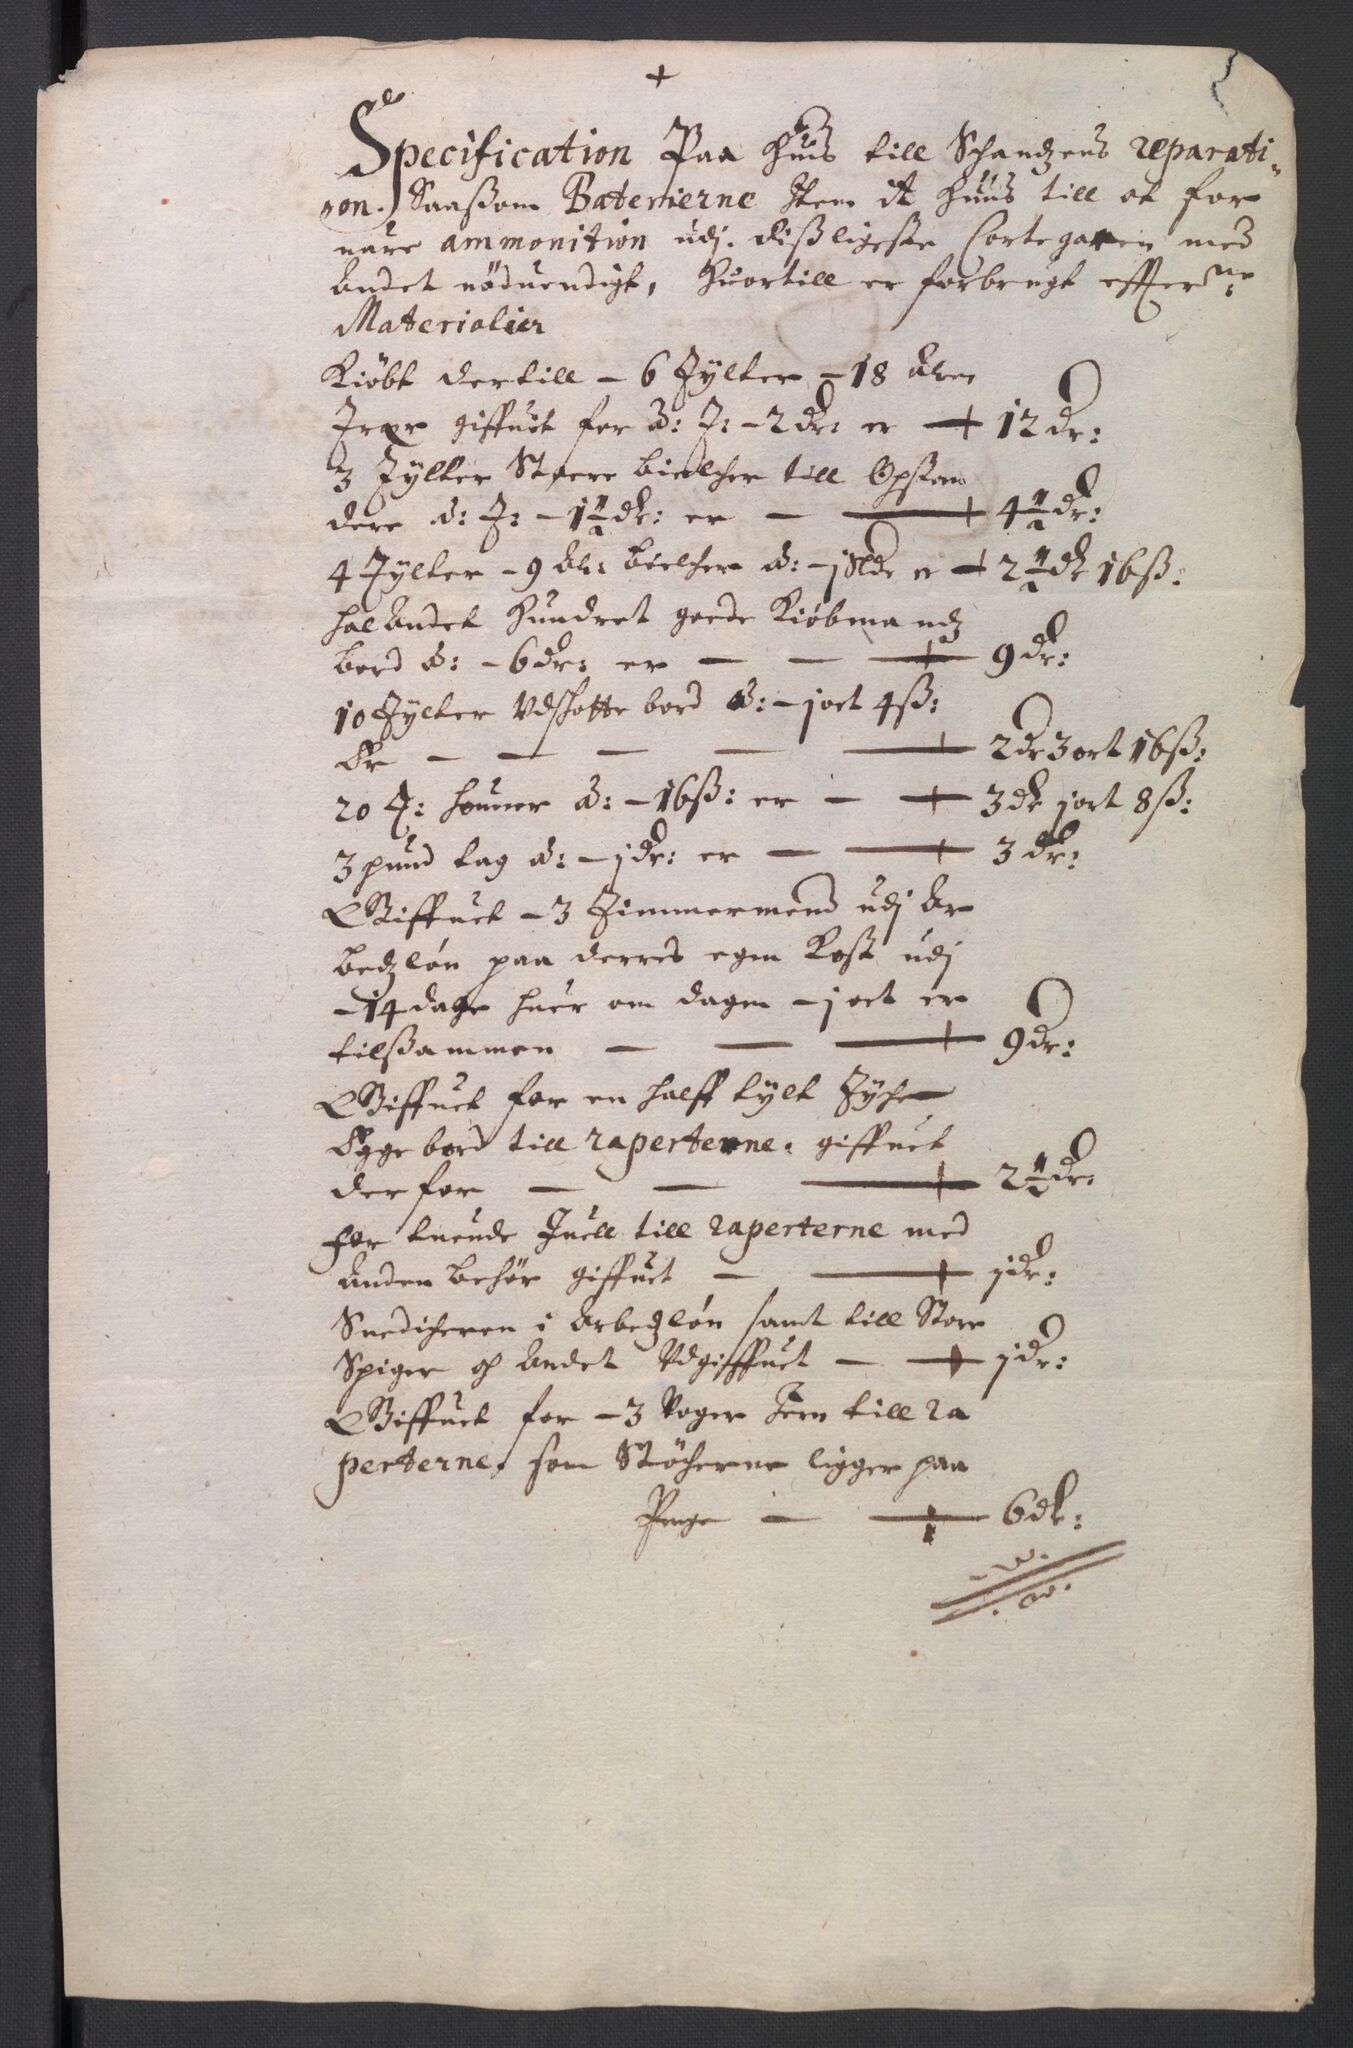 +
Specification Paa Huis till Schandzens reparati-
on. Saassom Baterierne Item it Huus till at for
uare ammonition udj. disligeste Cortegaren med
Andet nöduendigt, Huortill er forbrugt effterne
Materialier
Kiöbt dertill - 6 Tylter - 18 Alne
Trær giffuet for à: T: - 2 dr: er — 12 dr:
3 Tylter Stoere bielcher till Opstan
dere à: T: - 1½ dr: er — — 4½ dr:
4 Tylter - 9 Al: bielcher à: - j Slde er — 2½ dr 16 ß:
halAndet Hundret goede Kiöbmandz
bord à: - 6 dr: er — — — 9 dr:
10 Tylter Vdschotte bord à: - j ort 4 ß:
Er — — — — — 2 dr 3 ort 16 ß:
20 T: huuer à: - 16 ß: er — — 3 dr j ort 8 ß:
3 pund tag à: - j dr: er — — 3 dr:
Giffuet - 3 Timmermend udj Ar
bedzlön paa derres egen Kost udj
- 14 dage huer om dagen - j ort er
tilsammen — — — 9 dr:
Giffuet for en halff tylt Tyche
Egge bord till raperterne. giffuet
derfor — — — 2½ dr:
For tuende Juell till raperterne med
Anden behör giffuet — — j dr:
Snedicheren i Arbedzlön samt till Store
Spiger och Andet Vdgifffuet — — j dr:
Giffuet for - 3 Voger Jern till ra
perterne, som Stöcherne ligger paa
Penge — — 6 dr: